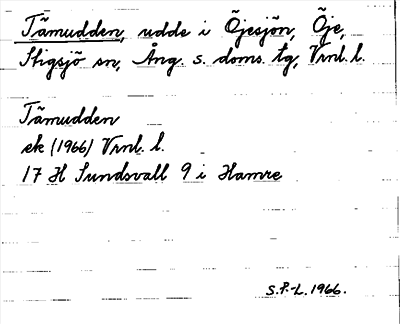 Tämudden, udde i Öjesjön, Öje,
Stigsjö sn, Ång. s. doms. tg, Vrnl. l.
Tämudden
ek (1966) Vrnl. l.
17 H Sundsvall 9 i Hamre
S.P.-L. 1966.